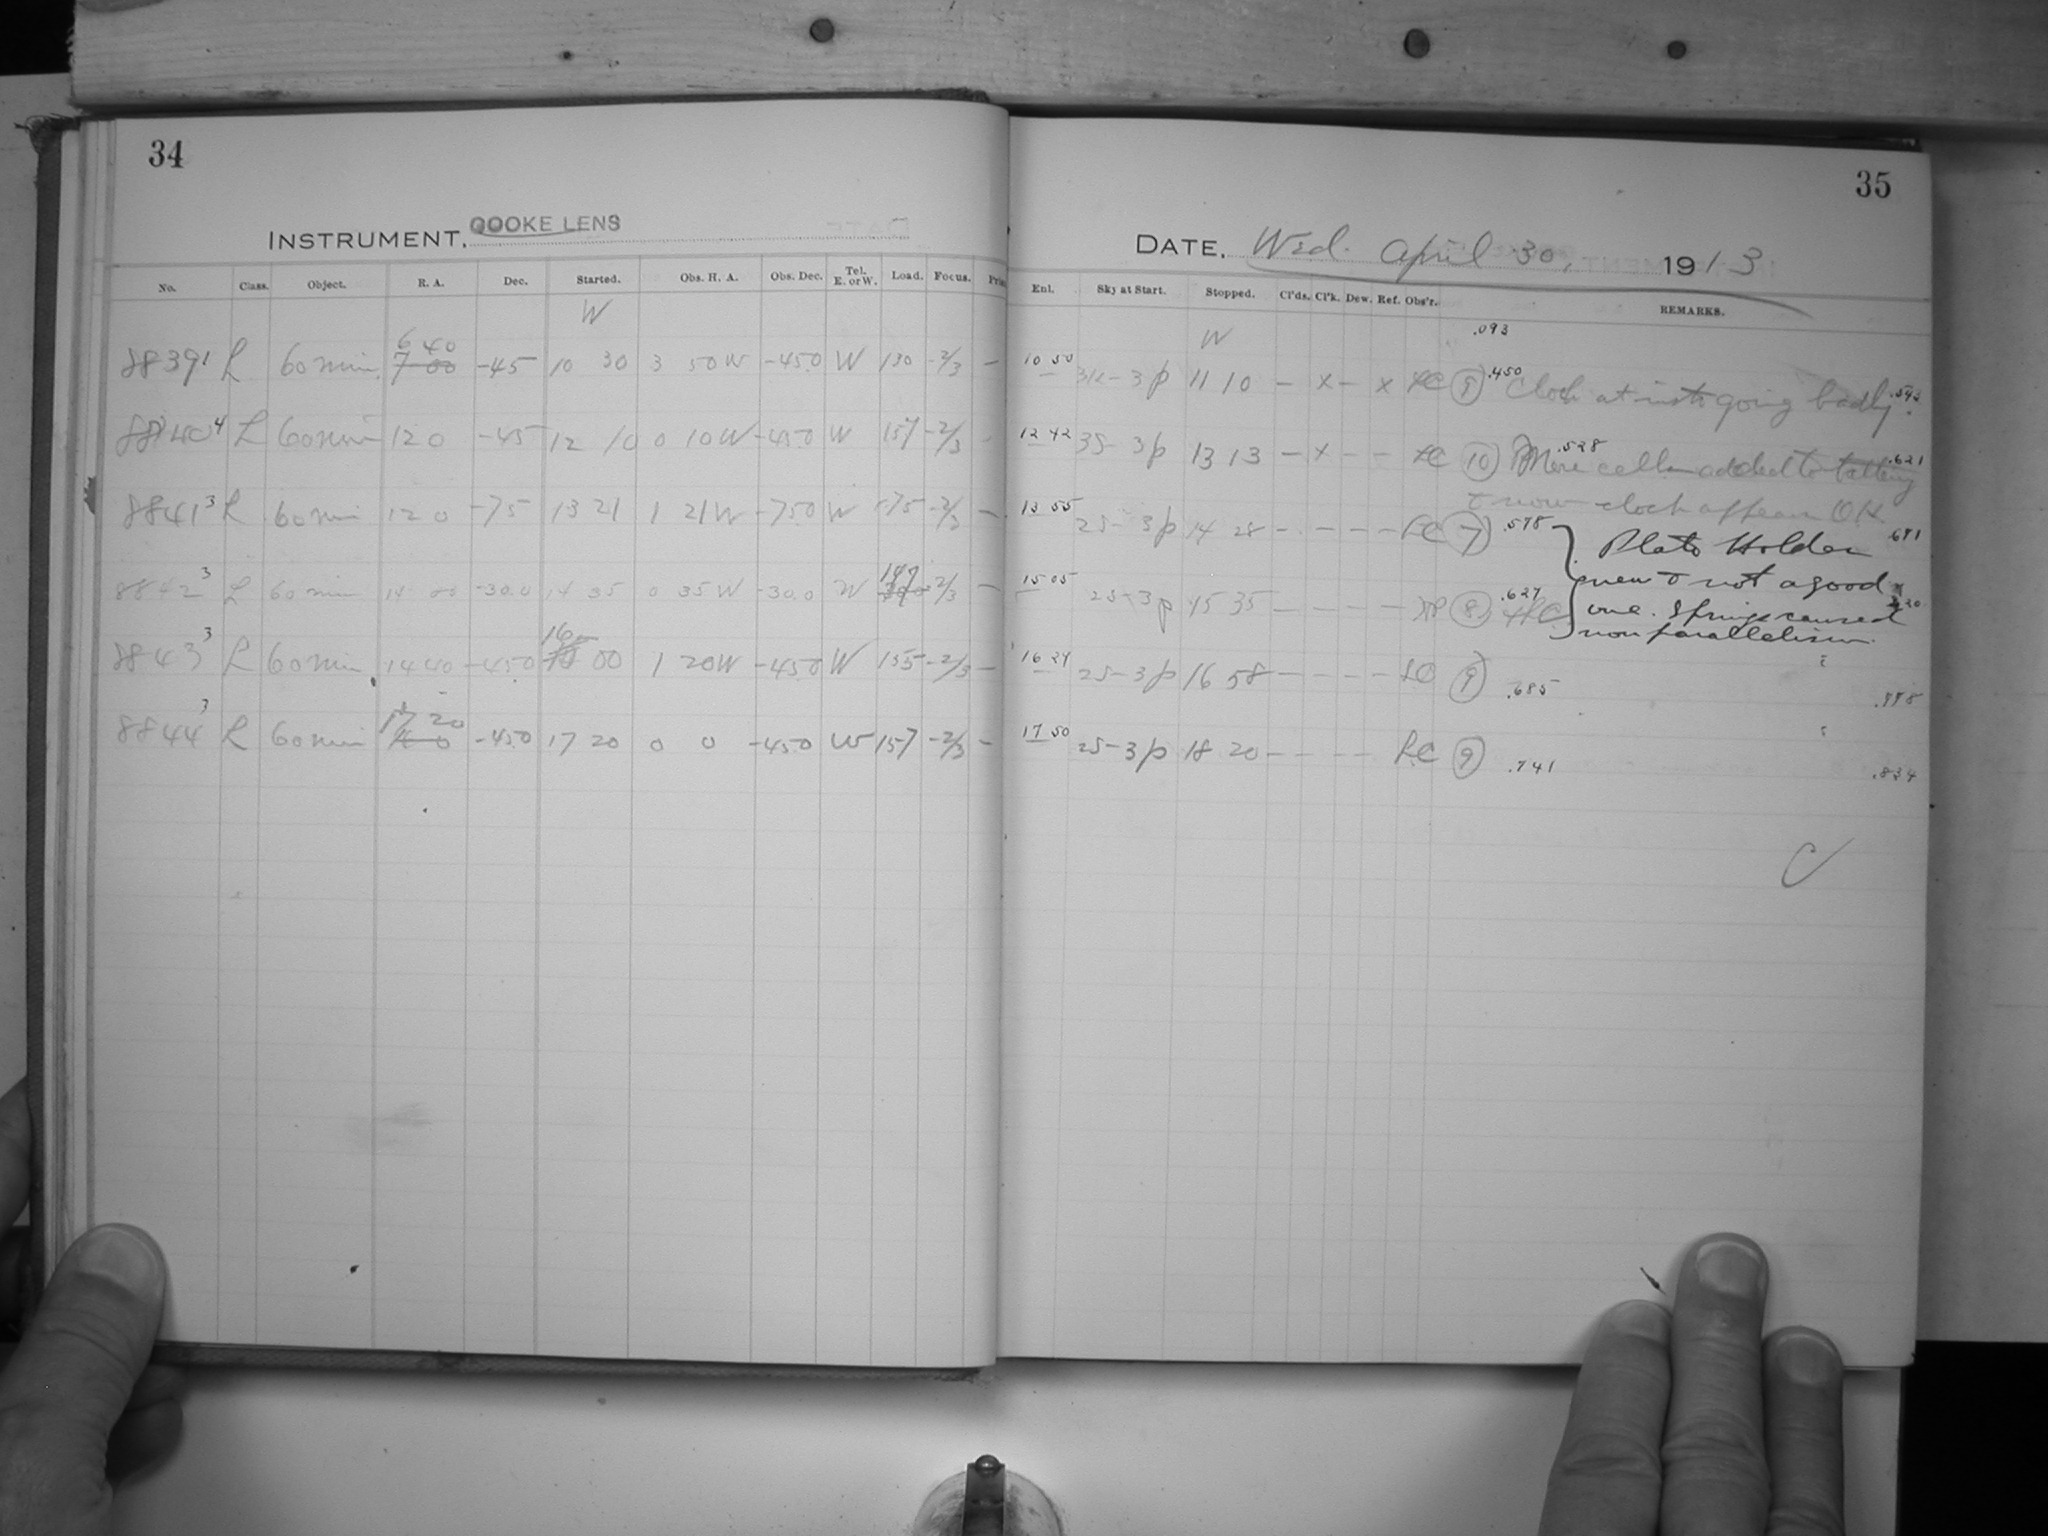 34
INSTRUMENT. COOKE LENS
No. Class. Object. R. A. Dec. Started. Obs. H. A. Obs. Dec. Tel. E. or W. Load. Focus.
W
6 40
8839 1 L 60 min. 7 00 -45 10 30 3 50 W -45.0 W 130 -2/3 —
8840 4 L 60 min 12 0 -45 12 10 0 10 W -45.0 W 157 -2/3 -
8841 3 L 60 min 12 0 -75 13 21 1 21 W -75.0 W 175 -2/3 —
8842 3 L 60 min 14 00 -30.0 14 35 0 35 W -30.0 W 147 -2/3 —
8843 3 L 60 min 14 40 -45.0 16 00 1 20 W -45.0 W 155 -2/3 —
17 20
8844 3 L 60 min -45.0 17 20 0 0 -45.0 W 157 -2/3 —
35
DATE. Wed. April 30, 1913
Enl. Sky at Start. Stopped. Cl'ds. Cl'k. Dew. Ref. Obs'r. REMARKS.
W .093
10 50 3p 11 10 — x — x (9) .450 Clock at inst. going badly. .543
12 42 3S-3p 13 13 — x — — (10) .528 More cells added to battery .621
& now clock appears O.K.
13 55 2S-3p 14 28 - - - - LC (7) .578 Plate Holder .671
new & not a good
15 05 2S-3p 15 35 - - - - (8) .627 one. Springs caused
non parallelism.
16 29 2S-3p 16 58 - - - - LC (9) .685 .778
17 50 2S-3p 18 20 - - - - LC (9) .741 .834
C